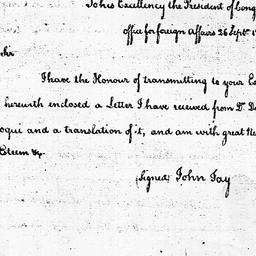 To his Excellency the President of Cong
Office for foreign Affairs 26 Sept. 1
Sir
I have the Honour of transmitting to your Ex
herewith enclosed a Letter I have received from Dr. De
oqui and a translation of it, and am with great Re
Esteem &c
(signed) John Jay